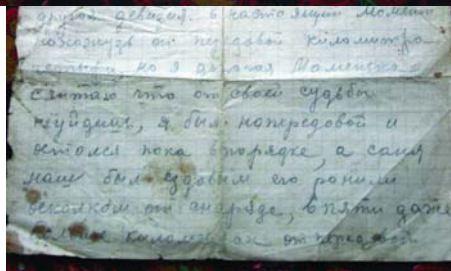 другой девизия. в настоящий момент
нахожусь от передовой километра
но я дорогая Томочка
считаю что от своей судьбы
неуйдиш, я был напередовой и
остался пока впорядке, а саня
наш был ездовым его ранили
осколком от снаряда, впяти даже
километрах от передовой